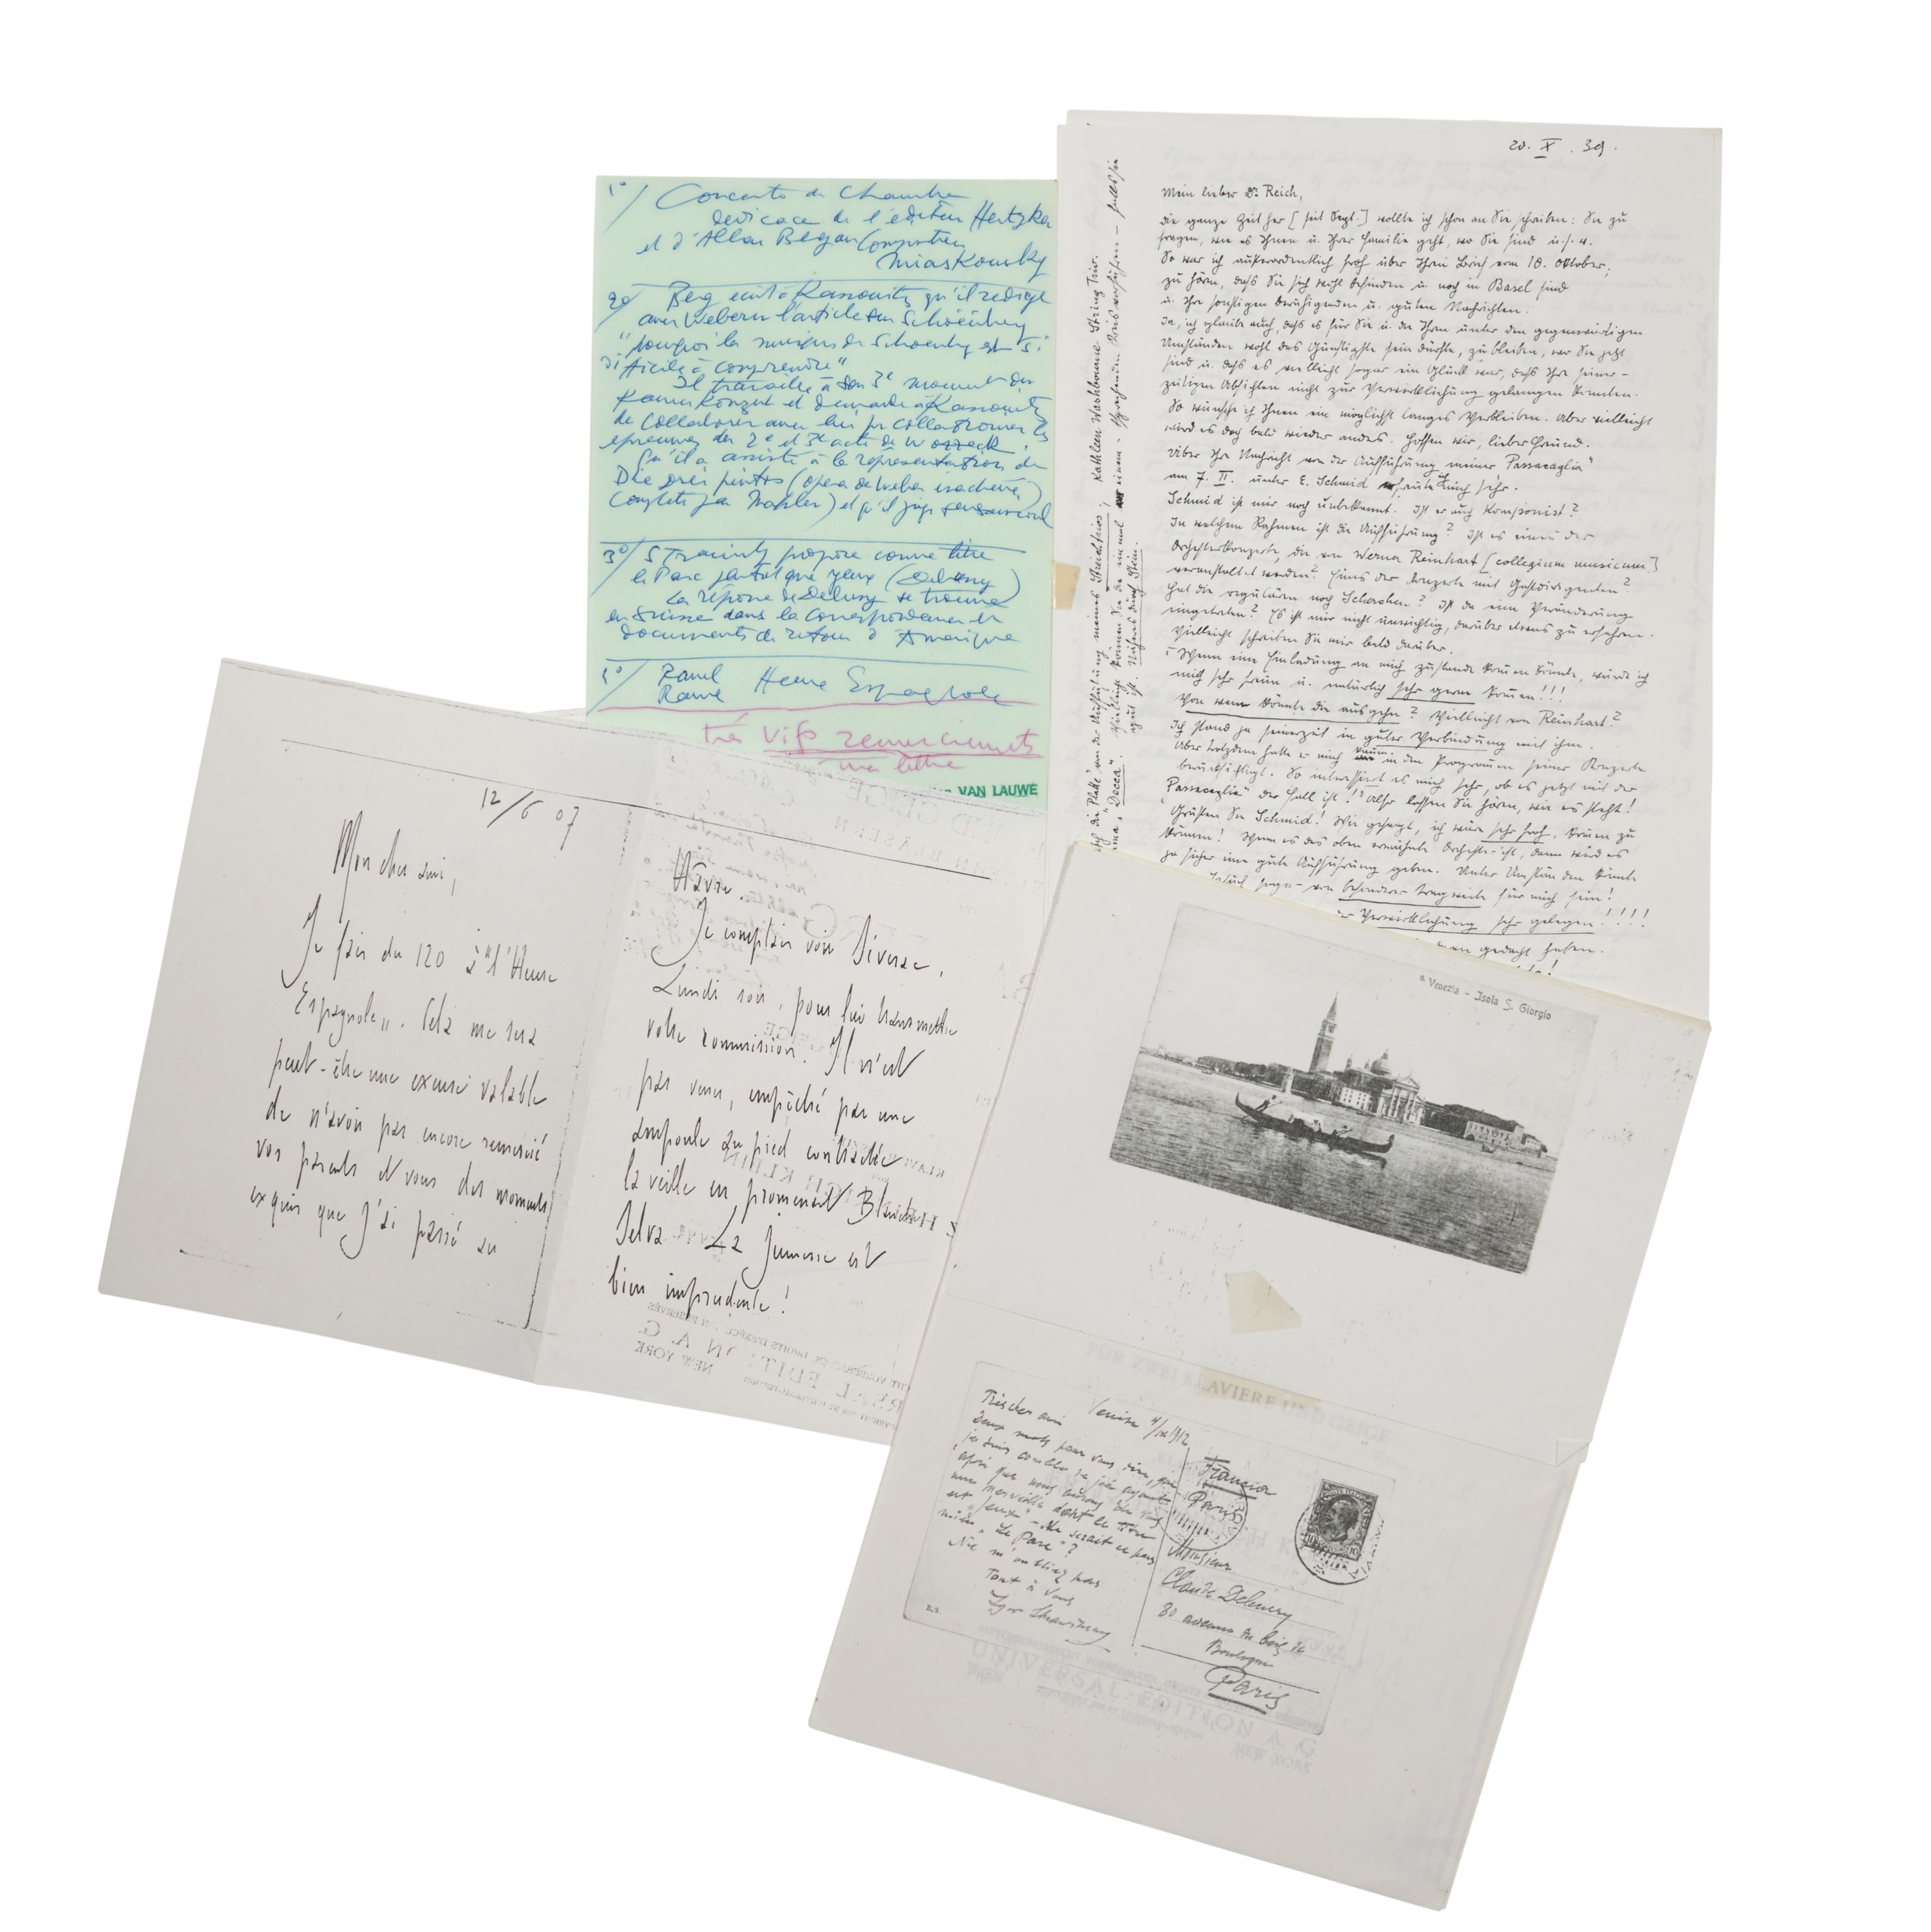 1°/ Concerto de Chambre
dedicace de l'éditeur Hertzka
et d'Alban Berg au Compositeur
Miaskowsky
2°/ Berg écrit à Kassowitz qu'il redige
avec Webern l'article sur Schoenberg
"pourquoi la musique de Schoenberg est si
difficile à comprendre"
Il travaille à son 3e mouvement du
Kammerkonzert et demande à Kassowitz
de collaborer avec lui pr collationner les
épreuves des 2e et 3e acte de Wozzeck.
qu'il a assisté à la représentation de
Die drei pintos (opera de Weber inachevé,
complété par Mahler) et qu'il juge sensationnel
3°/ Strawinsky propose comme titre
le Parc plutot que Jeux (Debussy)
La réponse de Debussy se trouve
en Suisse dans la correspondance et
documents de retour d'Amerique
Ravel Heure Espagnole
très vifs remerciements
ma lettre
VAN LAUWE
20. X. 39.
Mein lieber Dr Reich,
die ganze Zeit her [seit Sept.] wollte ich schon an Sie schreiben: Sie zu
fragen, wie es Ihnen u. Ihrer Familie geht, wo Sie sind u.s.w.
So war ich außerordentlich froh über Ihren Brief vom 18. Oktober;
zu hören, daß Sie sich wohl befinden u. noch in Basel sind
u. Ihre sonstigen beruhigenden u. guten Nachrichten.
Ja, ich glaube auch, daß es für Sie u. die Ihren unter den gegenwärtigen
Umständen wohl das Günstigste sein dürfte, zu bleiben, wo Sie jetzt
sind u. daß es vielleicht sogar ein Glück war, daß Ihre seiner-
zeitigen Absichten nicht zur Verwirklichung gelangen konnten.
So wünsche ich Ihnen ein möglichst langes Verbleiben. Aber vielleicht
wird es doch bald wieder anders. Hoffen wir, lieber Freund.
Über Ihre Nachricht von der Aufführung meiner „Passacaglia"
am 7. II. unter E. Schmid freute ich mich sehr.
Schmid ist mir noch unbekannt. Ist er auch Komponist?
In welchem Rahmen ist die Aufführung? Ist es eines der
Orchesterkonzerte, die von Werner Reinhart [collegium musicum]
veranstaltet werden? Eines der Konzerte mit Gastdirigenten?
Hat die regulären noch Scherchen? Ist da eine Veränderung
eingetreten? Es ist mir nicht unwichtig, darüber etwas zu erfahren.
Vielleicht schreiben Sie mir bald darüber.
Wenn eine Einladung an mich zustande kommen könnte, würde ich
mich sehr freuen u. natürlich sehr gerne kommen!!!
Von wem könnte die ausgehn? Vielleicht von Reinhart?
Ich stand ja seinerzeit in guter Verbindung mit ihm.
Aber trotzdem hatte er mich kaum in den Programmen seiner Konzerte
berücksichtigt. So interessiert es mich sehr, ob es jetzt mit der
„Passacaglia" der Fall ist! Also lassen Sie hören, wie es steht!
Grüßen Sie Schmid! Wie gesagt, ich wäre sehr froh, kommen zu
können! Wenn es das oben erwähnte Orchester ist, dann wird es
ja sicher eine gute Aufführung geben. Unter Umständen könnte
von besonderer Tragweite für mich sein!
Verwirklichung sehr gelegen!!!!
gedacht haben.
die Platte von der Aufführung meines Streichtrios; Kathleen Washbourne String Trio.
"Decca". Vielleicht können Sie die einmal
12/6 07
Mon cher ami,
Je fais du 120 à "l'Heure
Espagnole". Cela me sera
peut-être une excuse valable
de n'avoir pas encore remercié
vos parents et vous des moments
exquis que j'ai passé au
Havre.
Je comptais voir Diverse,
Lundi soir, pour lui transmettre
votre commission. Il n'est
pas venu, empêché par une
ampoule au pied contractée
la veille en promenant Blanche
Selva. La Jeunesse est
bien imprudente!
Venezia - Isola S. Giorgio
FÜR ZWEI KLAVIERE UND GEIGE
Venise 4/IX 1912
Très cher ami
Deux mots pour vous dire, que
je suis comblé de joie
après que nous aurons de vous
une merveille dont le titre
est „Jeux" - Ne serait ce pas
mieux „Le Parc"?
Ne m'oubliez pas
Tout à Vous
Igor Strawinsky
Francia
Paris
Monsieur
Claude Debussy
80 avenue du bois de
Boulogne
Paris
UNIVERSAL-EDITION A. G.
WIEN NEW YORK